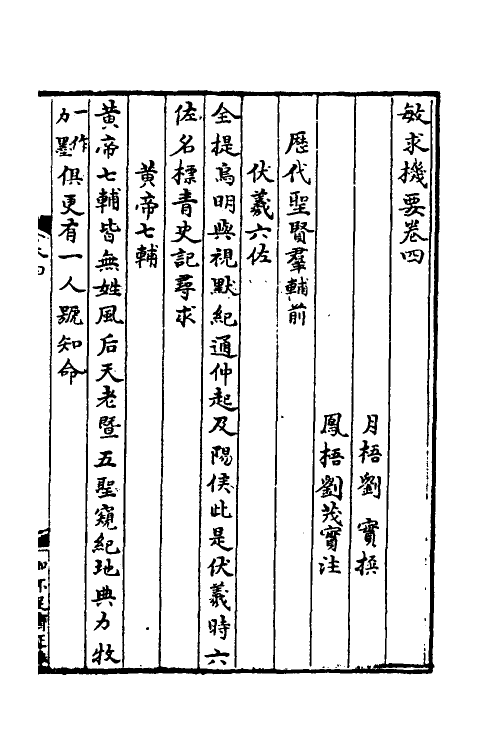 敏求機要卷四
月梧劉實撰
鳳梧劉茂實注
歷代聖賢羣輔前
伏羲六佐
全提鳥明與視默紀通仲起及陽侯此是伏羲時六
佐名標青史記尋求
黃帝七輔
黃帝七輔皆無姓風后天老暨五聖窺紀地典力牧
一作力墨俱更有一人號知命